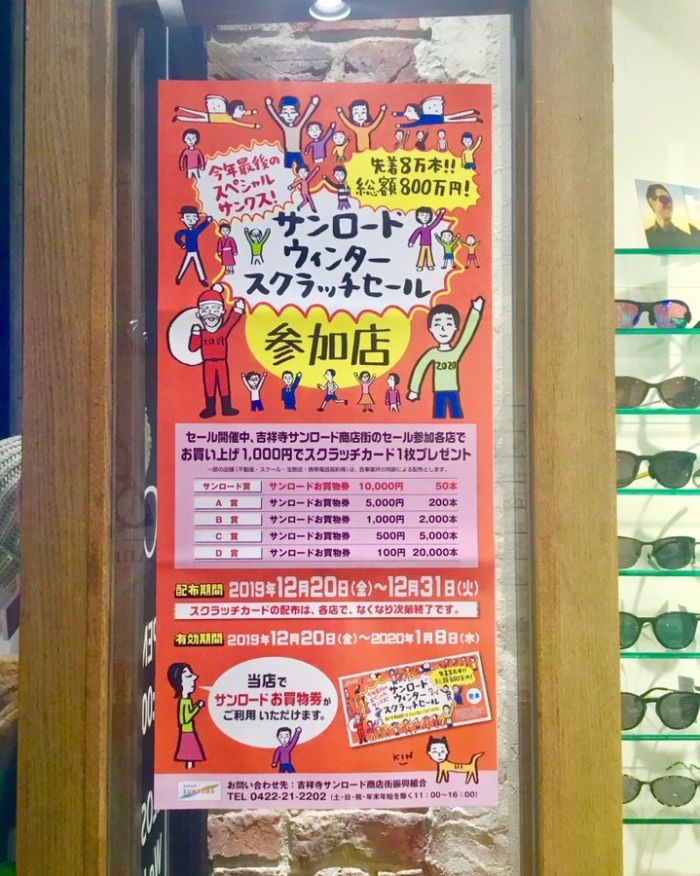 今年最後の
スペシャル
サンクス!
先着8万本!!
総額800万円!
サンロード
ウィンター
スクラッチセール
2019
参加店
2020
セール開催中、吉祥寺サンロード商店街のセール参加各店で
お買い上げ1,000円でスクラッチカード1枚プレゼント
サンロード賞 サンロードお買物券 10,000円 50本
A 賞 サンロードお買物券 5,000円 200本
B 賞 サンロードお買物券 1,000円 2,000本
C 賞 サンロードお買物券 500円 5,000本
D 賞 サンロードお買物券 100円 20,000本
配布期間 2019年12月20日(金)〜12月31日(火)
スクラッチカードの配布は、各店で、なくなり次第終了です。
有効期間 2019年12月20日(金)〜2020年1月8日(水)
当店で
サンロードお買物券が
ご利用いただけます。
サンロード
ウィンター
スクラッチセール
見本
KIN
SUNROAD
お問い合わせ先:吉祥寺サンロード商店街振興組合
TEL 0422-21-2202 (土・日・祝・年末年始を除く11:00〜16:00)